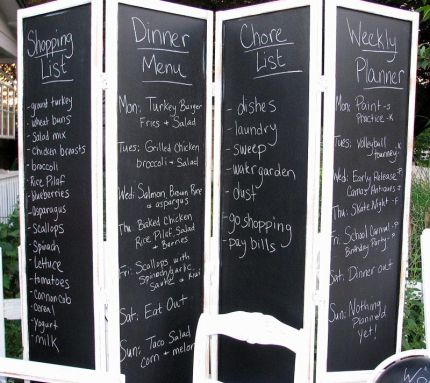 Shopping
List
- ground turkey
- wheat buns
- Salad mix
- Chicken breasts
- broccoli
- Rice Pilaf
- blueberries
- asparagus
- scallops
- Spinach
- Lettuce
- tomatoes
- corn on cob
- cereal
- yogurt
- milk
Dinner
Menu
Mon: Turkey Burger
Fries + Salad
Tues: Grilled Chicken
broccoli + Salad
Wed: Salmon, Brown Rice
+ asparagus
Thu: Baked Chicken
Rice Pilaf, Salad
+ Berries
Fri: Scallops with
Spinach/garlic
Sauté + 
Sat: Eat Out
Sun: Taco Salad
corn + melon
Chore
List
- dishes
- laundry
- sweep
- water garden
- dust
- go shopping
- pay bills
Weekly
Planner
Mon: Paint -S
Practice -K
Tues: Volleyball
tourney -K
Wed: Early Release -P
Thu: Skate Night -P
Fri: School Carnival -P
Birthday Party -P
Sat: Dinner out
Sun: Nothing
Planned
yet!